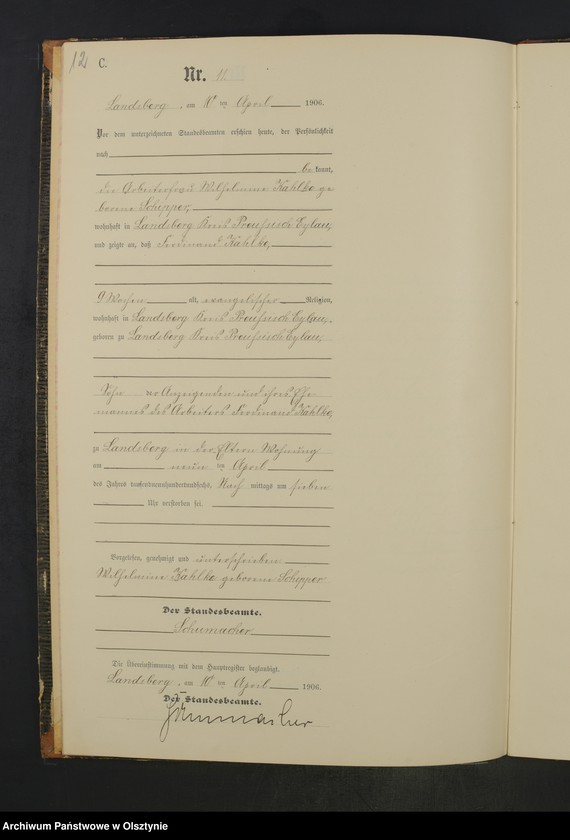 12
C.
Nr. 11
Landsberg, am 10ten April 1906.
Vor dem unterzeichneten Standesbeamten erschien heute, der Persönlichkeit
nach
bekannt,
die Arbeiterfrau Wilhelmine Kahlke ge
borene Schipper,
wohnhaft in Landsberg Kreis Preußisch Eylau,
und zeigte an, daß Ferdinand Kahlke,
9 Wochen alt, evangelischer Religion,
wohnhaft in Landsberg Kreis Preußisch Eylau,
geboren zu Landsberg Kreis Preußisch Eylau,
Sohn der Anzeigenden und ihres Ehe-
mannes des Arbeiters Ferdinand Kahlke,
zu Landsberg in der Eltern Wohnung
am neun ten April
des Jahres tausendneunhundertundsechs, Nachmittags um sieben
Uhr verstorben sei.
Vorgelesen, genehmigt und unterschrieben
Wilhelmine Kahlke geborene Schipper
Der Standesbeamte.
Schumacher
Die Übereinstimmung mit dem Hauptregister beglaubigt.
Landsberg, am 10ten April 1906.
Der Standesbeamte.
Schummacher
Archiwum Państwowe w Olsztynie